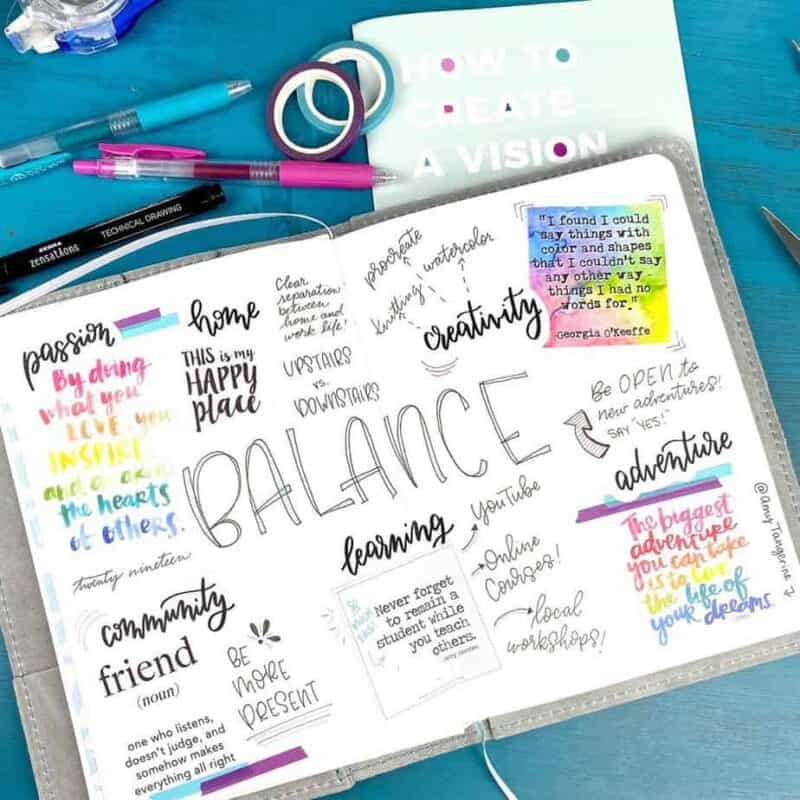 HOW TO
CREATE
A VISION
ZEBRA
zensations
TECHNICAL DRAWING
passion
By doing
what you
LOVE, you
INSPIRE
and
the hearts
of others.
home
THIS is my
HAPPY
place
Clear
separation
between
home and
work life!
UPSTAIRS
vs.
DOWNSTAIRS
procreate
knitting
watercolor
creativity
"I found I could
say things with
color and shapes
that I couldn't say
any other way -
things I had no
words for."
Georgia O'Keeffe
BALANCE
Be OPEN to
new adventures!
SAY "YES!"
adventure
The biggest
adventure
you can take
is to live
the life of
your dreams.
@Amy Tangerine
twenty nineteen
community
friend
(noun)
one who listens,
doesn't judge, and
somehow makes
everything all right
BE
MORE
PRESENT
learning
Never forget
to remain a
student while
you teach
others.
YouTube
Online
Courses!
local
workshops!